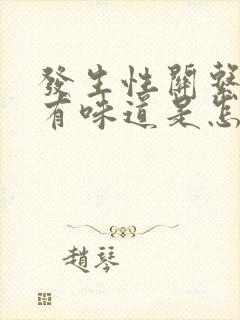 發生性關繫
有味道是怎
趙琴